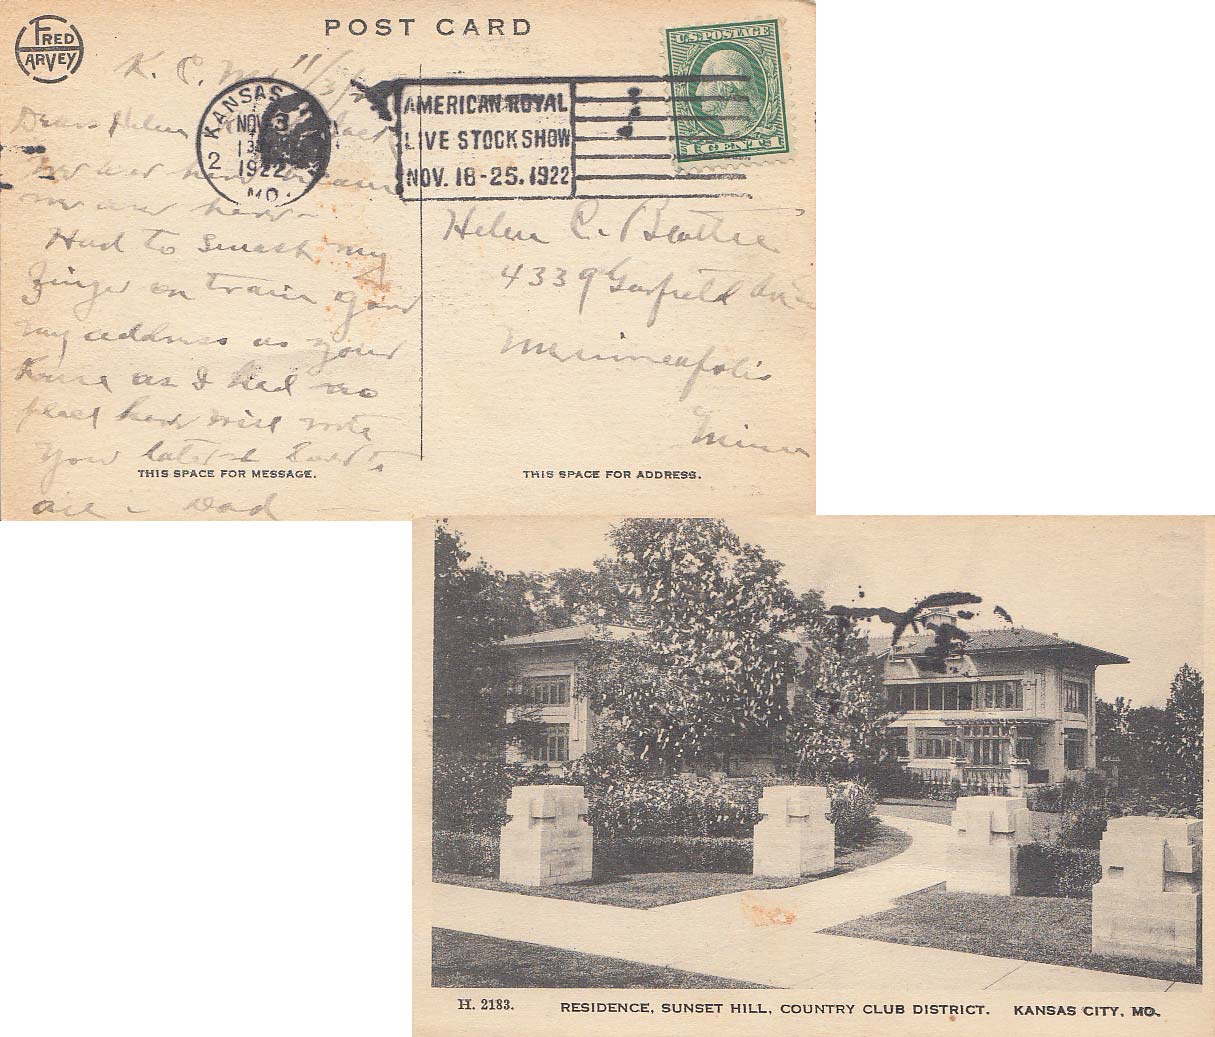 FRED
HARVEY
POST CARD
U.S. POSTAGE
1 CENTS 1
K. C. Mo 11/3/22
KANSAS
NOV 3
1922
MO.
2
AMERICAN ROYAL
LIVE STOCK SHOW
NOV. 18-25. 1922
Dear Helen
Had to smash my
finger on train Gave
my address as your
House as I had no
place here will write
you later Love to
all - Dad
THIS SPACE FOR MESSAGE.
Helen C. Beattie
4339 Garfield Ave
Minneapolis
Minn
THIS SPACE FOR ADDRESS.
H. 2183. RESIDENCE, SUNSET HILL, COUNTRY CLUB DISTRICT. KANSAS CITY, MO.